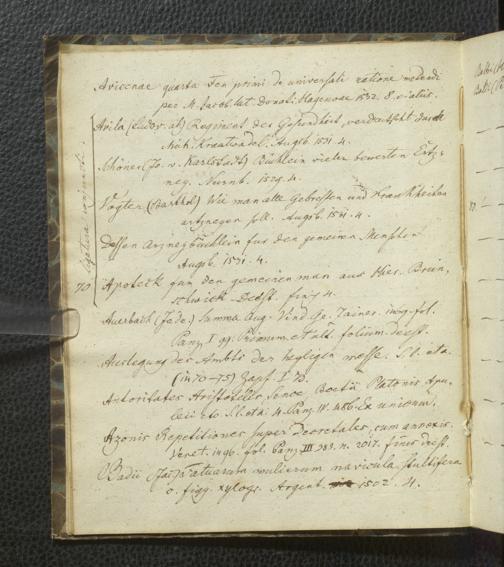 Avicenae quarta Fen primi de universali ratione medendi
per M. Jacob. lat. donat. Hagenoae 1532. 8. v. alius.
Avila (Ludov. ab) Regiment der Gesundheit, verdeutscht durch
Mich. Krautwadel. Augsb. 1531. 4.
Schöner (Jo. v. Karlstadt) Büchlein vieler bewerten Ertz-
ney. Nürnb. 1529. 4.
Vogter (Barthol.) Wie man alle Gebresten und Krankheiten
artzneyen soll. Augsb. 1531. 4.
Dessen Arzneybüchlein für den gemeinen Menschen
Augsb. 1531. 4.
Apoteck für den gemeinen man aus Hier. Brun,
schwick. Deest. finis 4.
70
Auerbach (Jo. de) Summa. Aug. Vind. Gr. Zainer. 1469. fol.
Panz. I. Primum et ult. folium deest.
Auslegung der Ambts der heyligen messe. S. l. et a.
(1470-75) Zapf. I
Autoritates Aristotelis, Senec. Boetii Platonis Apu-
leii etc. S. l. et a. 4. Panz. IV. Ex unionum.
Azonis Repetitiones super decretales, cum annexis.
Venet. 1496. fol. Panz. III n. 2017. finis deest.
Badii (Jod.) fatuarum mulierum navicula. Stultiferae
c. figg. xylogr. Argent. 1502. 4.
Balbi
Balbi